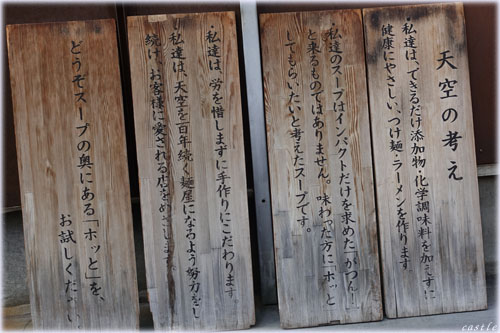 天空の考え
・私達は、できるだけ添加物・化学調味料を加えずに
健康にやさしい、つけ麺・ラーメンを作ります
・私達のスープはインパクトだけを求めた「がつん!」
と来るものではありません。味わった方にホッと
してもらいたいと考えたスープです。
・私達は、労を惜しまずに手作りにこだわります。
・私達は、天空を百年続く麺屋になるよう努力をし
続け、お客様に愛される店をめざします。
どうぞスープの奥にある「ホッと」を、
お試しください。
castle